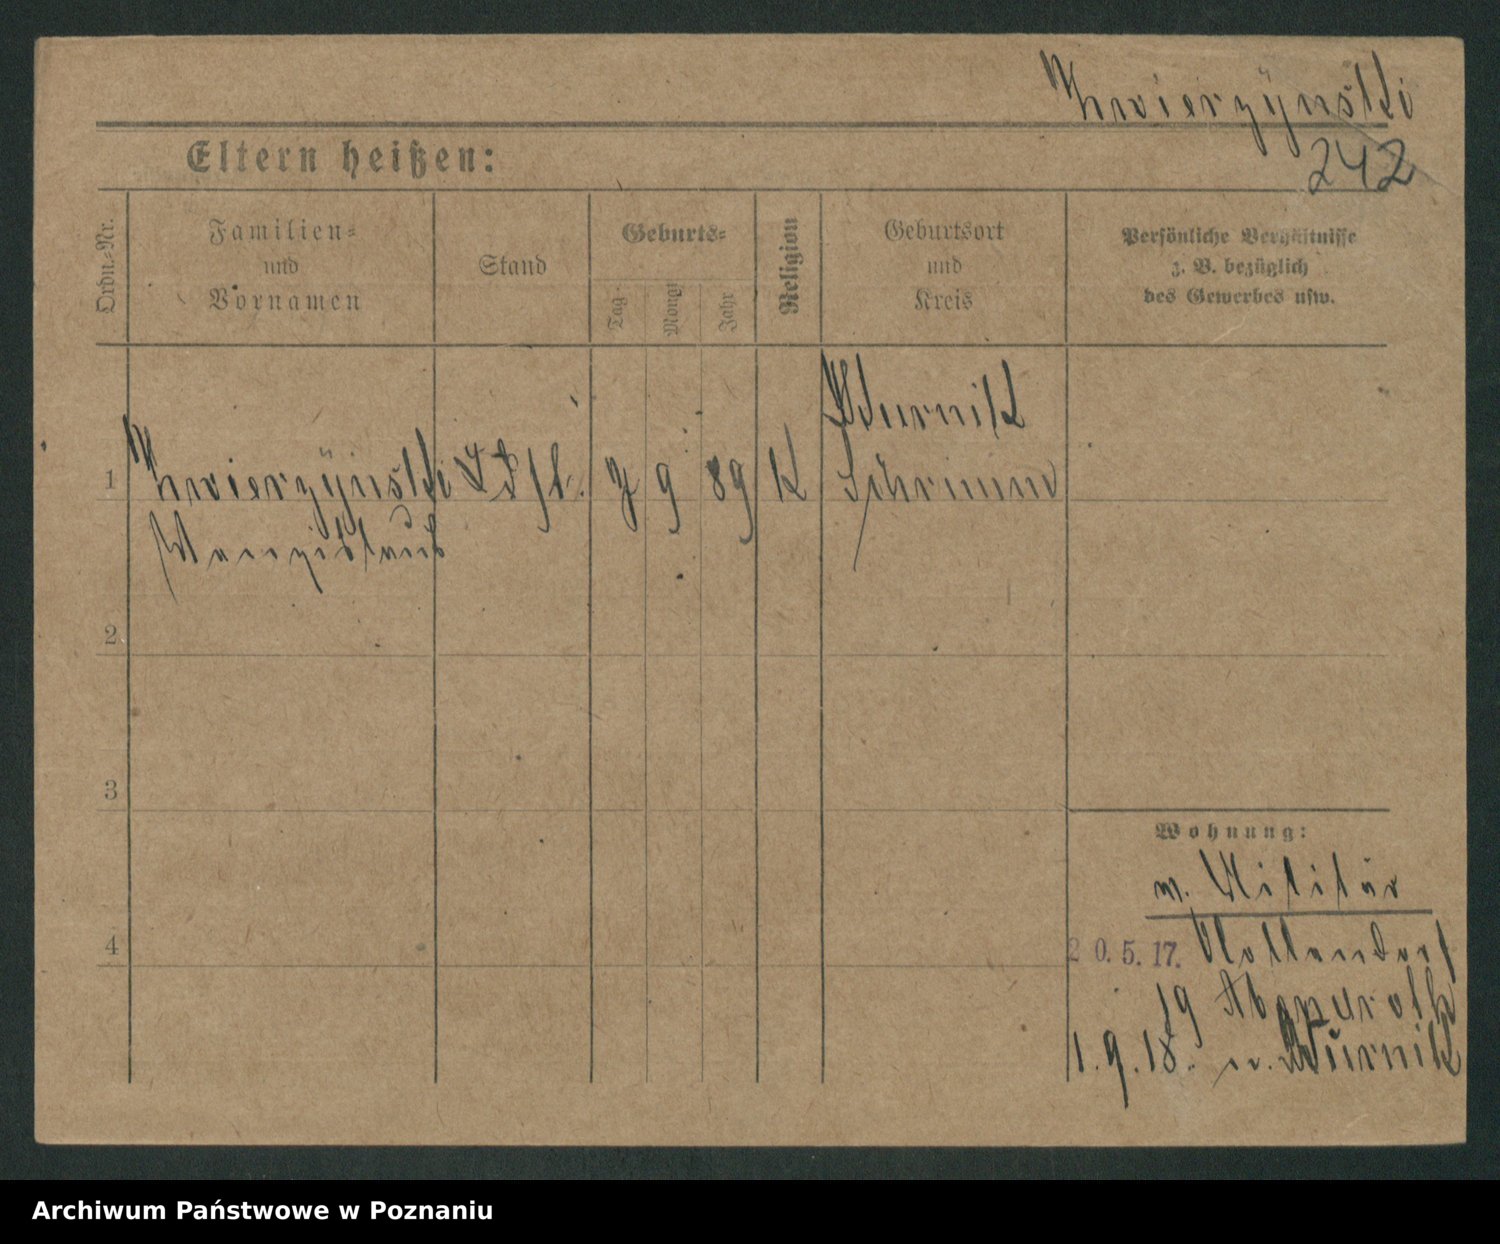 Zwierzynski
242
Eltern heißen:
Ordn.-Nr.
Familien-
und
Vornamen
Stand
Geburts-
Tag
Monat
Jahr
Religion
Geburtsort
und
Kreis
Persönliche Verhältnisse
z. B. bezüglich
des Gewerbes usw.
Kurnik
1 Zwierzynski 9 89 K Schrimm
2
3
4
Wohnung:
v. Militär
20.5.17.
19
1.9.18. n. Kurnik
Archiwum Państwowe w Poznaniu